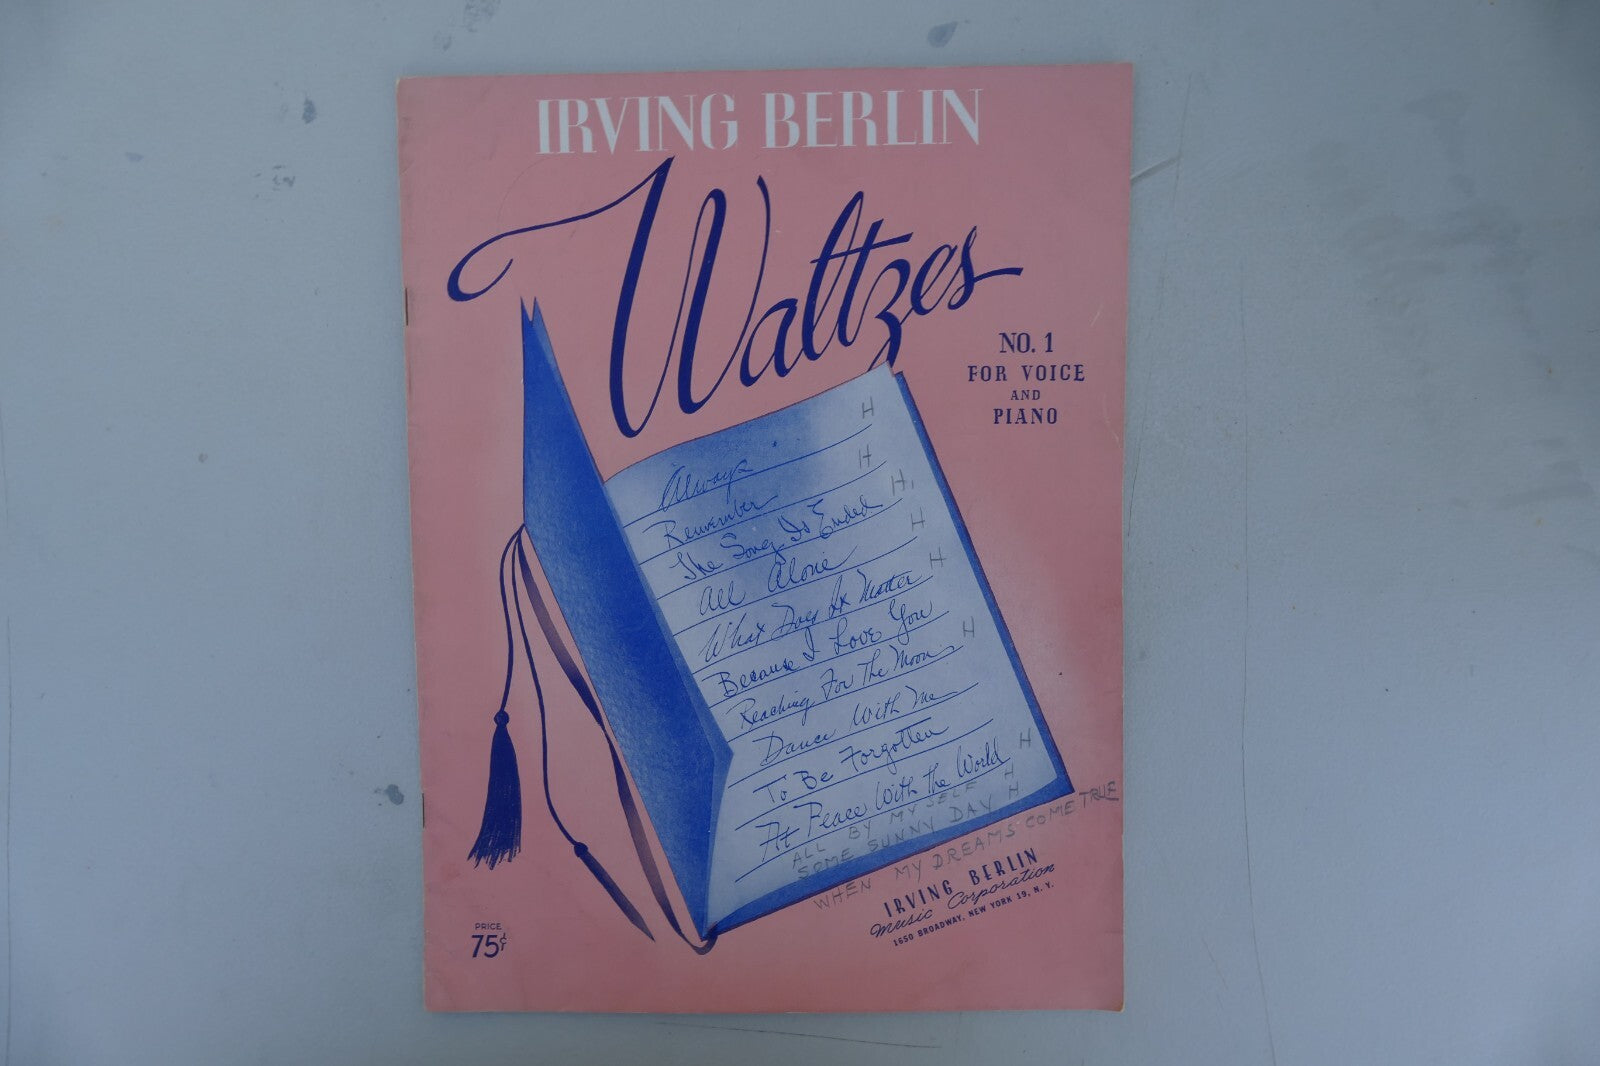 IRVING BERLIN
Waltzes
NO. 1
FOR VOICE
AND
PIANO
Always H
Remember H
The Song Is Ended H
All Alone H
What Does It Matter H
Because I Love You
Reaching For The Moon H
Dance With Me
To Be Forgotten
At Peace With The World H
ALL BY MY SELF H
SOME SUNNY DAY H
WHEN MY DREAMS COME TRUE
IRVING BERLIN
Music Corporation
1650 BROADWAY, NEW YORK 19, N. Y.
PRICE
75¢